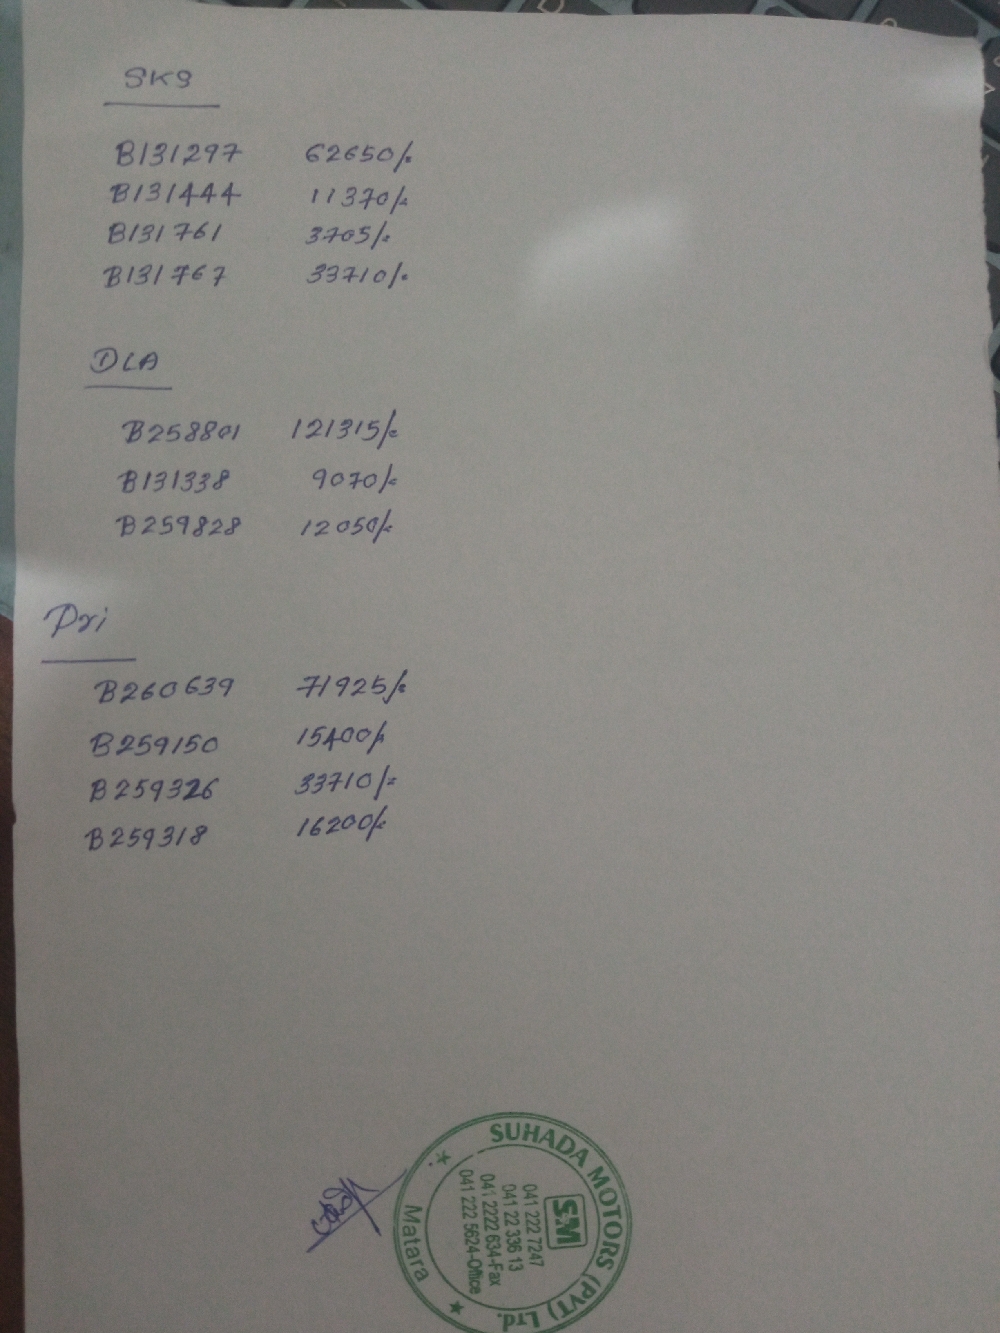 SKS
B131297 62650/=
B131444 11370/=
B131761 3705/=
B131767 33710/=
DLA
B258801 121315/=
B131338 9070/=
B259828 12050/=
Pri
B260639 71925/=
B259150 15400/=
B259326 33710/=
B259318 16200/=
SUHADA MOTORS (PVT) Ltd.
SM
041 222 7247
041 22 336 13
041 2222 634-Fax
041 222 5624-Office
Matara